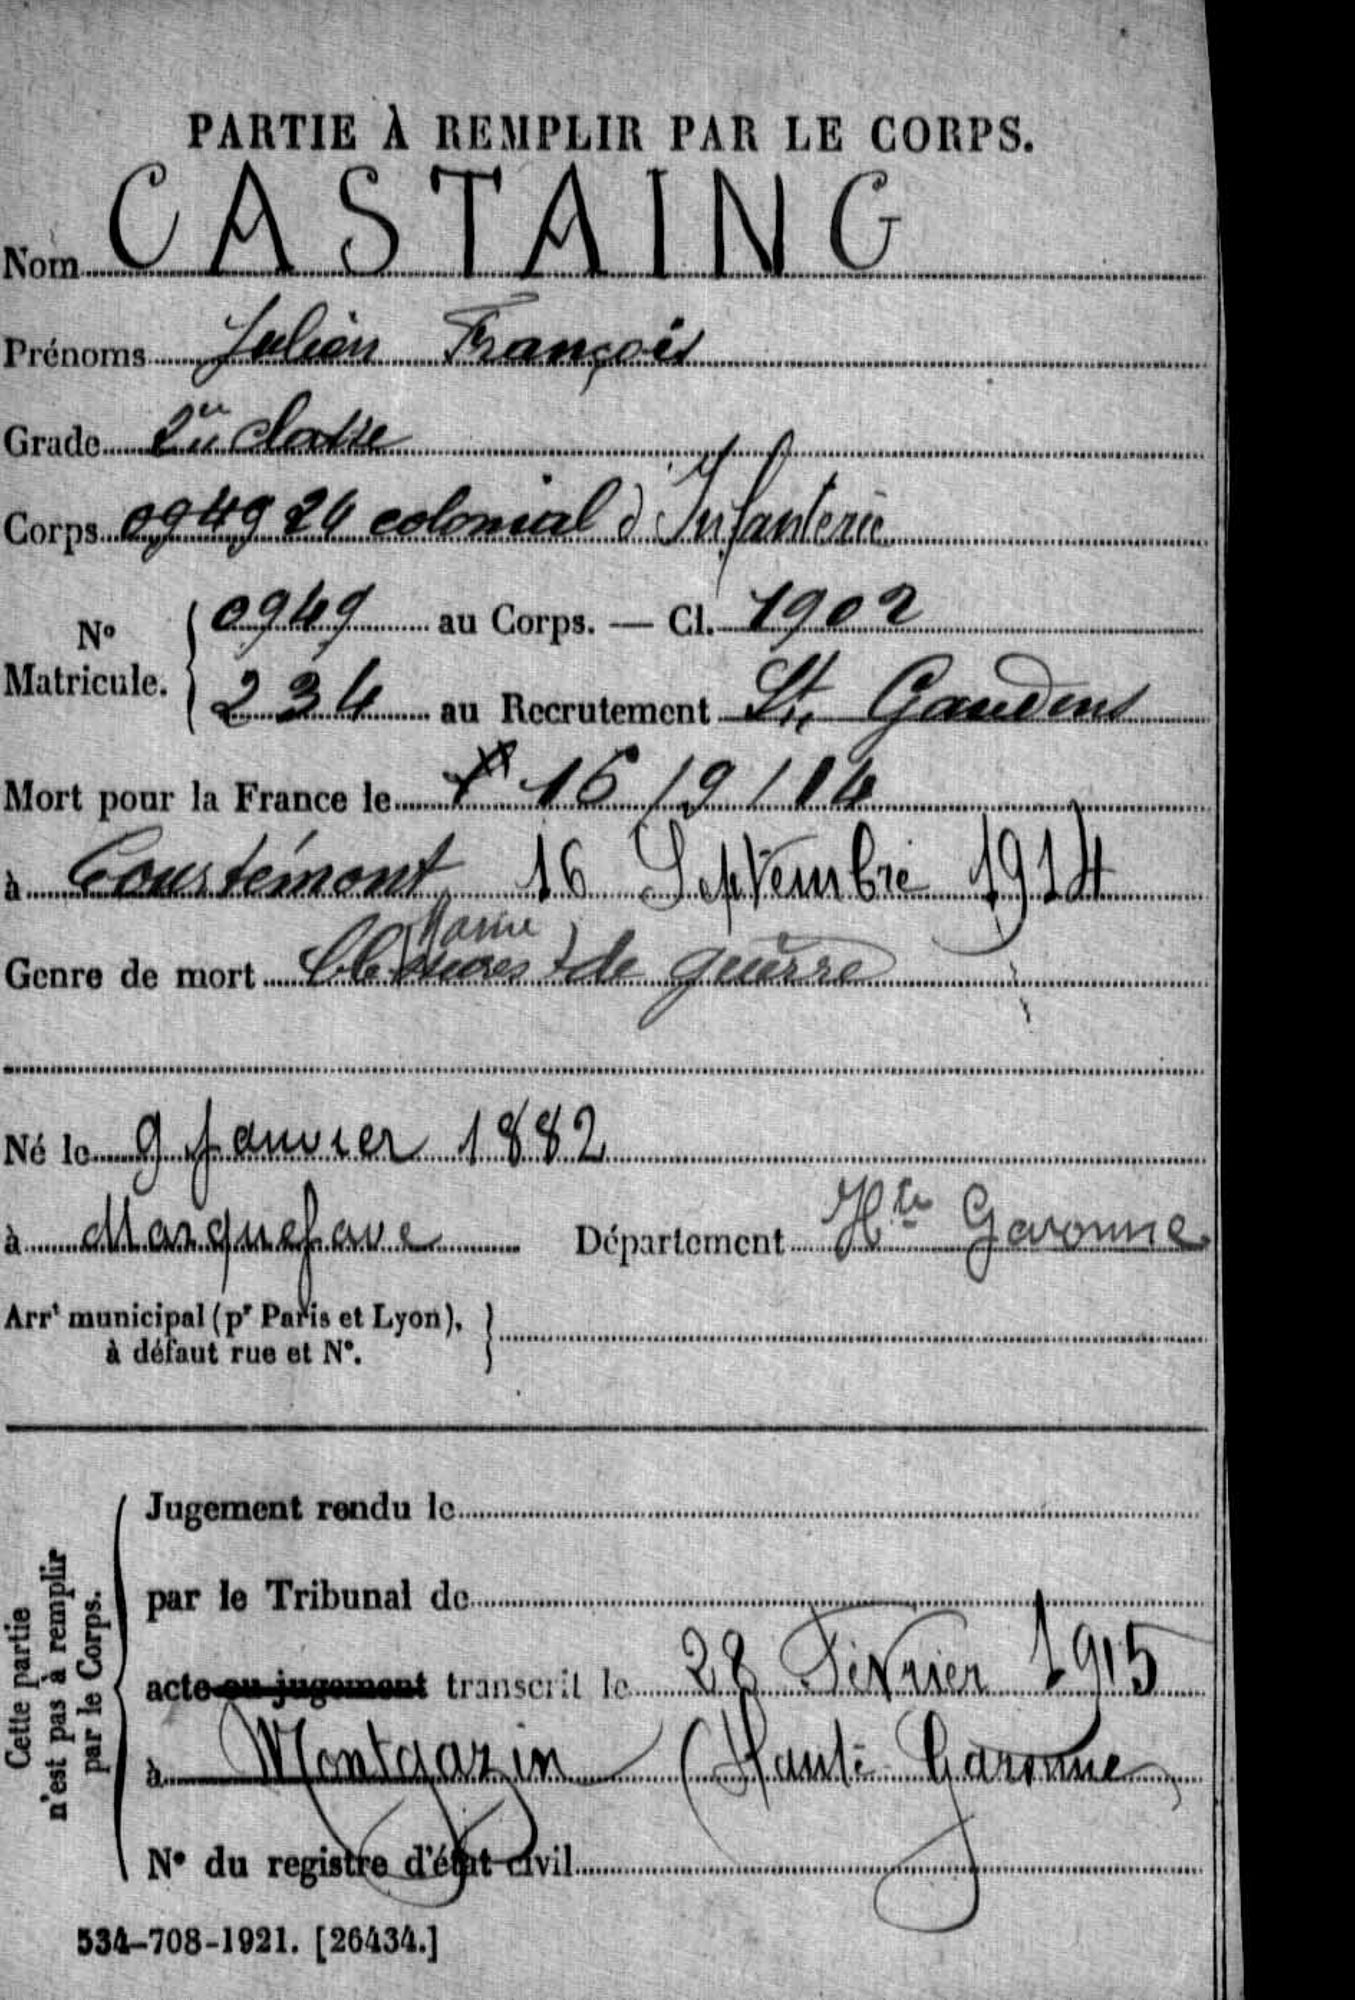 PARTIE À REMPLIR PAR LE CORPS.
Nom CASTAING
Prénoms Julien François
Grade 2e classe
Corps 0949 24 colonial d'Infanterie
No Matricule. { 0949 au Corps. — Cl. 1902
234 au Recrutement St Gaudens
Mort pour la France le 16/9/14
à Courtémont 16 Septembre 1914
(Marne)
Genre de mort blessures de guerre
Né le 9 Janvier 1882
à Marquefave Département Hte Garonne
Arrt municipal (pr Paris et Lyon), }
à défaut rue et N°.
Cette partie
n'est pas à remplir
par le Corps.
Jugement rendu le
par le Tribunal de
acte ou jugement transcrit le 28 Février 1915
à Montgazin (Haute-Garonne)
N° du registre d'état civil
534-708-1921. [26434.]